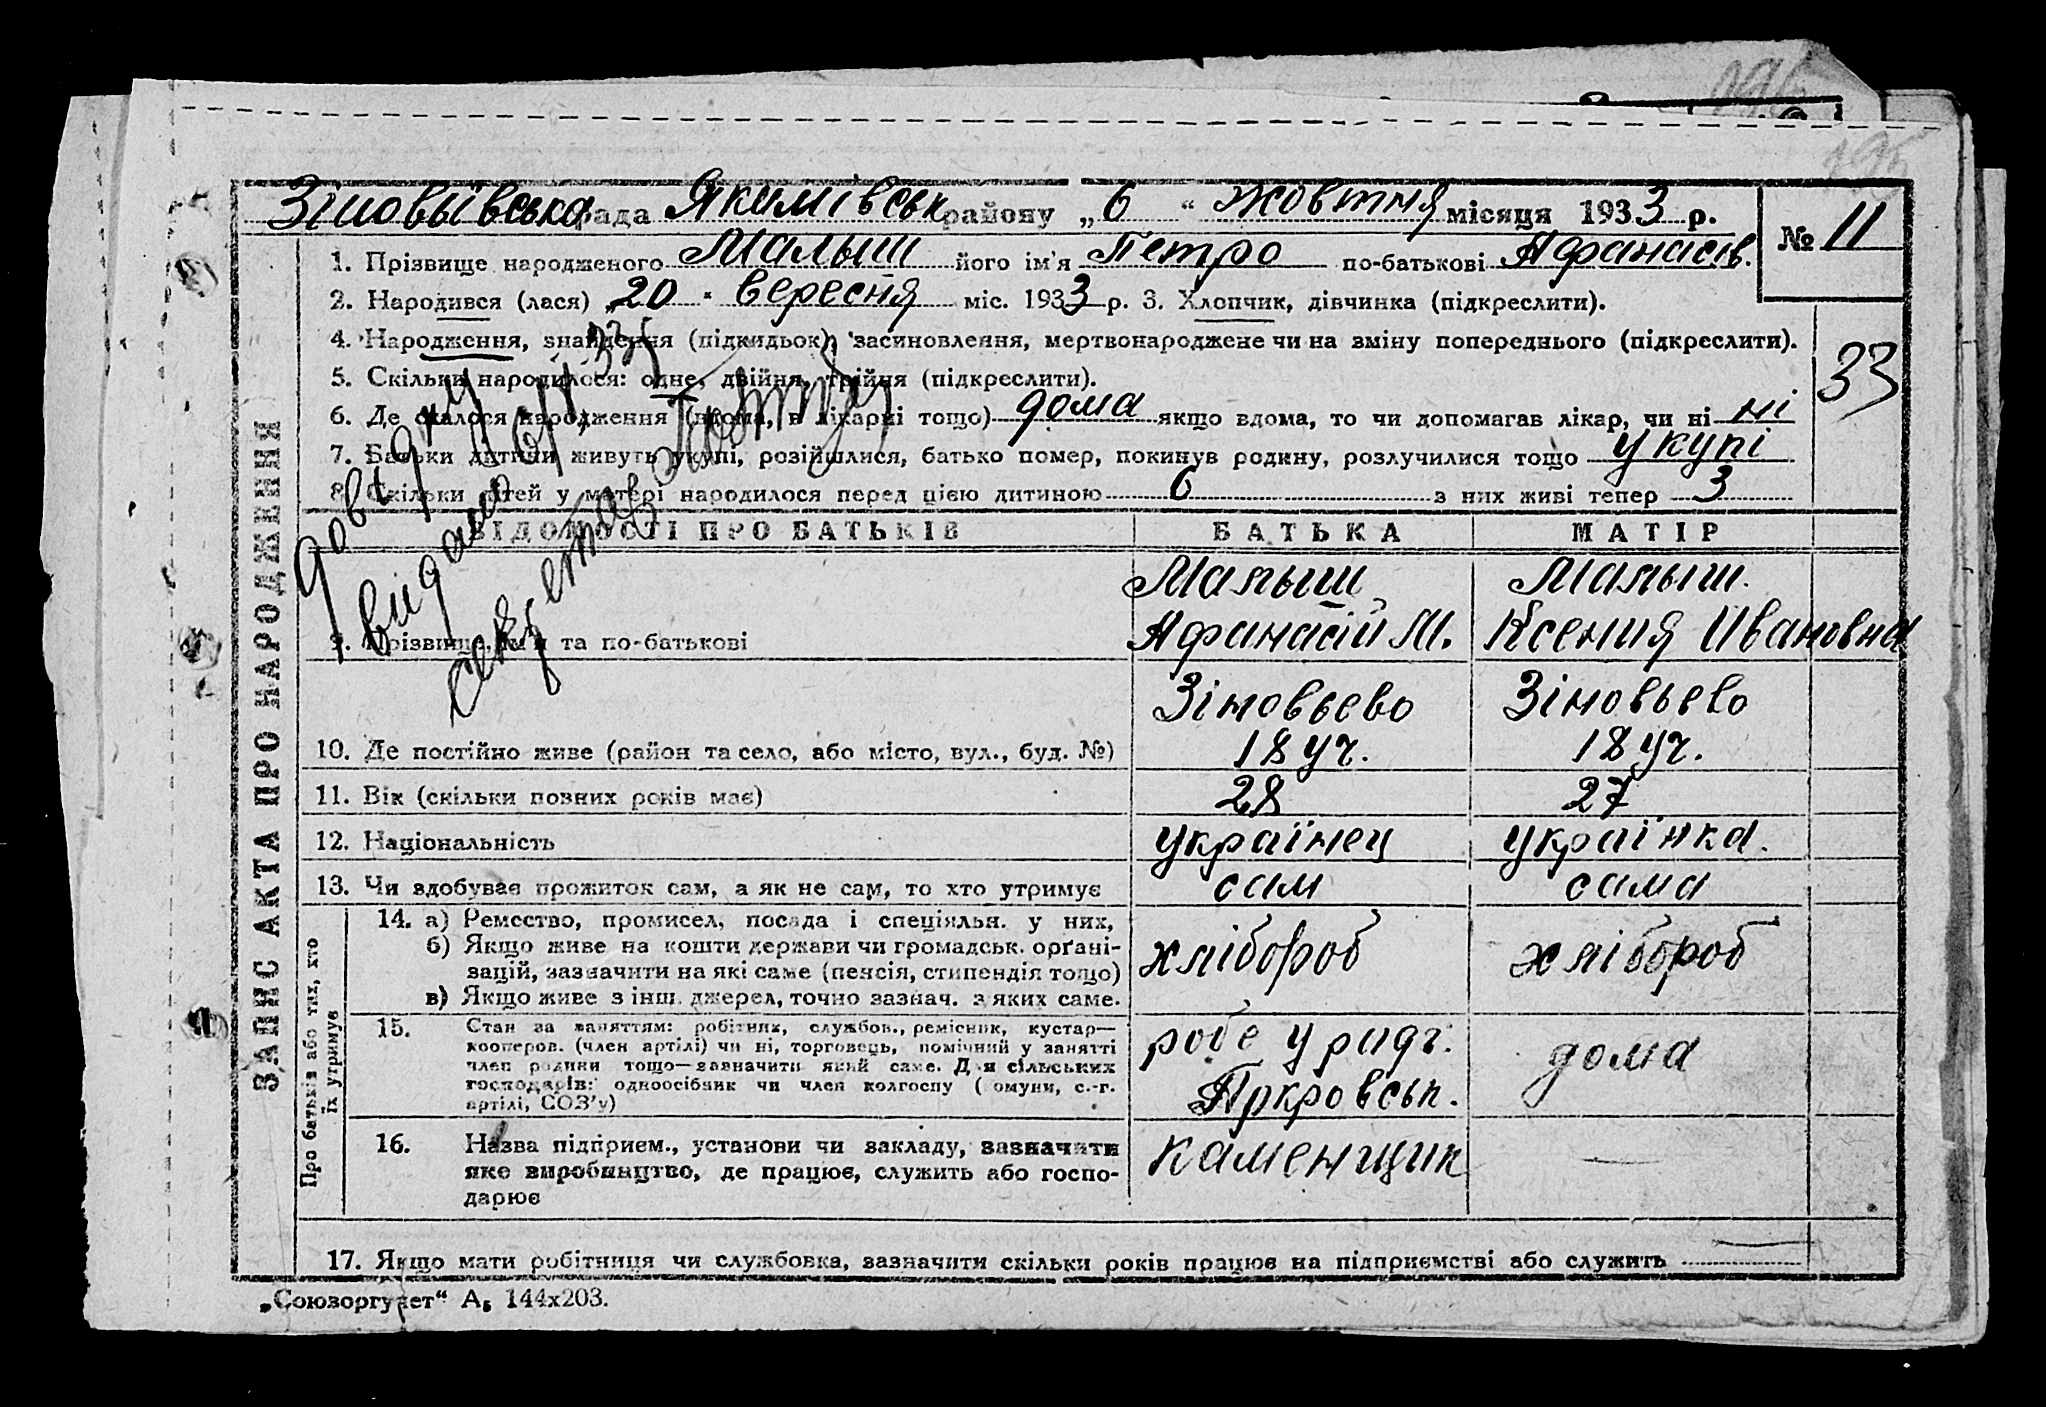 195
Зіновьівська рада Якимівськ району „6“ жовтня місяця 1933 р.
№ 11
1. Прізвище народженого Малыш його ім'я Петро по-батькові Афанасів.
2. Народився (лася) 20 " вересня міс. 1933 р. 3. Хлопчик, дівчинка (підкреслити).
4. Народження, знайдення (підкидьок), засиновлення, мертвонароджене чи на зміну попереднього (підкреслити).
33
5. Скільки народилося: одне, двійня, трійня (підкреслити).
6. Де сталося народження (вдома, в лікарні тощо) дома якщо вдома, то чи допомагав лікар, чи ні ні
7. Батьки дитини живуть укупі, розійшлися, батько помер, покинув родину, розлучилися тощо укупі
8. Скільки дітей у матері народилося перед цією дитиною 6 з них живі тепер 3
довідку
видано
секретар
ВІДОМОСТІ ПРО БАТЬКІВ БАТЬКА МАТІР
Малыш Малыш.
9. Прізвище, ім'я та по-батькові Афанасій М. Ксения Ивановна
Зіновьево Зіновьево
10. Де постійно живе (район та село, або місто, вул., буд. №) 18 уч. 18 уч.
11. Вік (скільки повних років має) 28 27
12. Національність українец українка.
13. Чи здобуває прожиток сам, а як не сам, то хто утримує сам сама
14. а) Ремество, промисел, посада і спеціяльн. у них,
б) Якщо живе на кошти держави чи громадськ. орґані-
зацій, зазначити на які саме (пенсія, стипендія тощо)
в) Якщо живе з інш. джерел, точно зазнач. з яких саме.
хлібороб хлібороб
15. Стан за заняттям: робітник, службов., ремісник, кустар—
кооперов. (член артілі) чи ні, торговець, помічний у занятті
член родини тощо—зазначити який саме. Для сільських
господарів: одноосібник чи член колгоспу ( омуни, с.-г.
артілі, СОЗ'у)
робе у радг. дома
Пркровськ.
16. Назва підприєм., установи чи закладу, зазначити
яке виробництво, де працює, служить або госпо-
дарює
каменщик —
17. Якщо мати робітниця чи службовка, зазначити скільки років працює на підприємстві або служить —
ЗАПИС АКТА ПРО НАРОДЖЕННЯ
Про батьків або тих, хто
їх утримує
„Союзоргучет“ А₅ 144х203.